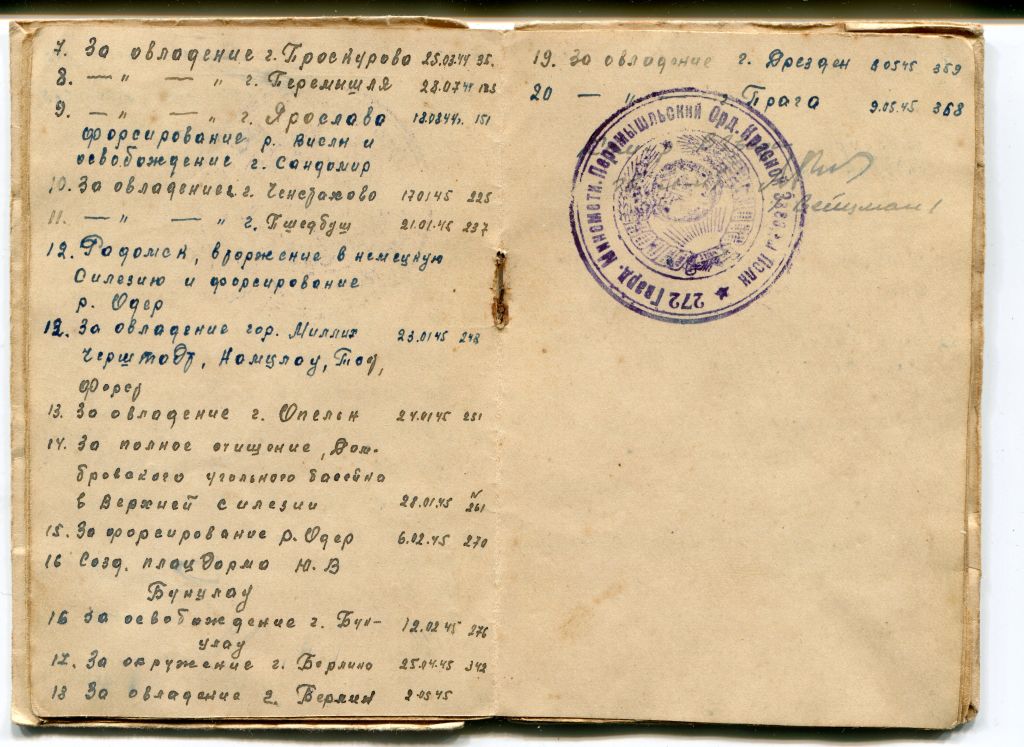 7. За овладение г. Проскурово 25.03.44 35.
8. — " — " г. Перемышля 28.0744
9. — " — " г. Ярослава 18.0844г. 151
форсирование р. Вислы и
освобождение г. Сандомир
10. За овладение г. Ченстахово 170145 225
11. — " — " г. Пшедбуш 21.01.45 237
12. Радомск, вторжение в немецкую
Силезию и форсирование
р. Одер
12. За овладение гор. Миллих 23.0145 248
Черштадт, Намулау, Тод,
13. За овладение г. Опельн 24.0145 251
14. За полное очищение, Дом-
бровского угольного бассейна
в Верхней Силезии 28.01.45 № 261
15. За форсирование р. Одер 6.02.45 270
16 Созд. плацдарма Ю.В
Бунулау
16 За освобождение г. Бун- 12.02.45 276
улау
17. За окружение г. Берлина 25.04.45 342
18 За овладение г. Берлин 2.0545
19. За овладение г. Дрезден 8 0545 359
20 — " г. Прага 9.05.45 368
272 Гвард. Минометн. Перемышльский Орд. Красной Звезды Полк
Вейцман